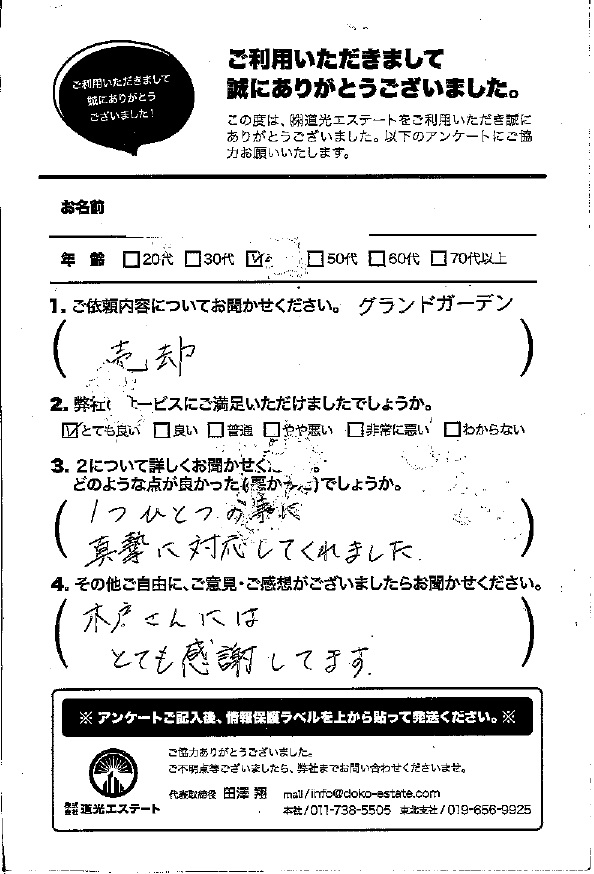 ご利用いただきまして
誠にありがとう
ございました！
ご利用いただきまして
誠にありがとうございました。
この度は、㈱道光エステートをご利用いただき誠に
ありがとうございました。以下のアンケートにご協
力お願いいたします。
お名前
年 齢 □20代 □30代 ☑ □50代 □60代 □70代以上
1. ご依頼内容についてお聞かせください。 グランドガーデン
売却
2. 弊社 ービスにご満足いただけましたでしょうか。
☑とても良い □良い □普通 □やや悪い □非常に悪い □わからない
3. 2について詳しくお聞かせく 。
どのような点が良かった(悪か )でしょうか。
1つひとつの事に
真摯に対応してくれました.
4. その他ご自由に、ご意見・ご感想がございましたらお聞かせください。
木戸さんには
とても感謝してます.
※ アンケートご記入後、情報保護ラベルを上から貼って発送ください。※
ご協力ありがとうございました。
ご不明点等ございましたら、弊社までお問い合わせくださいませ。
株式会社 道光エステート
代表取締役 田澤 翔 mail/info@doko-estate.com
本社/011-738-5505 東北支社/019-656-9925